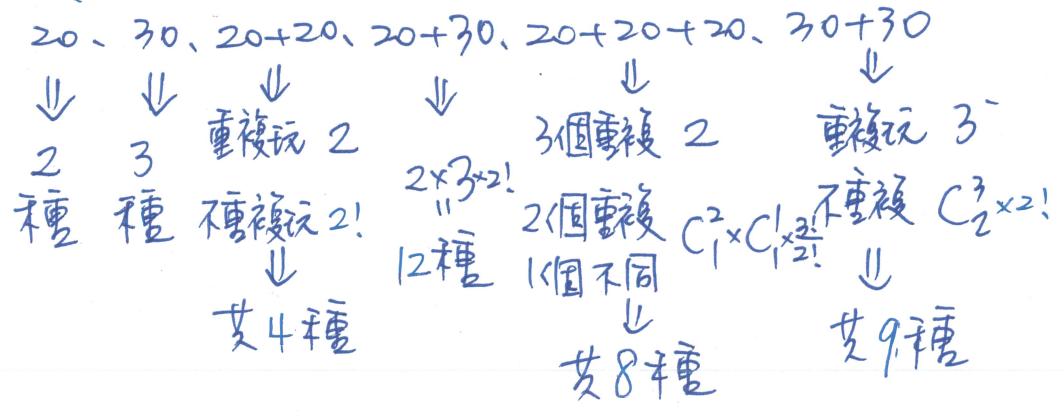 20、30、20+20、20+30、20+20+20、30+30
⇓ ⇓ ⇓ ⇓ ⇓ ⇓
2種
3種
重複玩 2
不重複玩 2!
⇓
共4種
2×3×2!
=
12種
3個重複 2
2個重複
1個不同 C²₁×C¹₁×3!/2!
⇓
共8種
重複玩 3
不重複 C³₂×2!
⇓
共9種